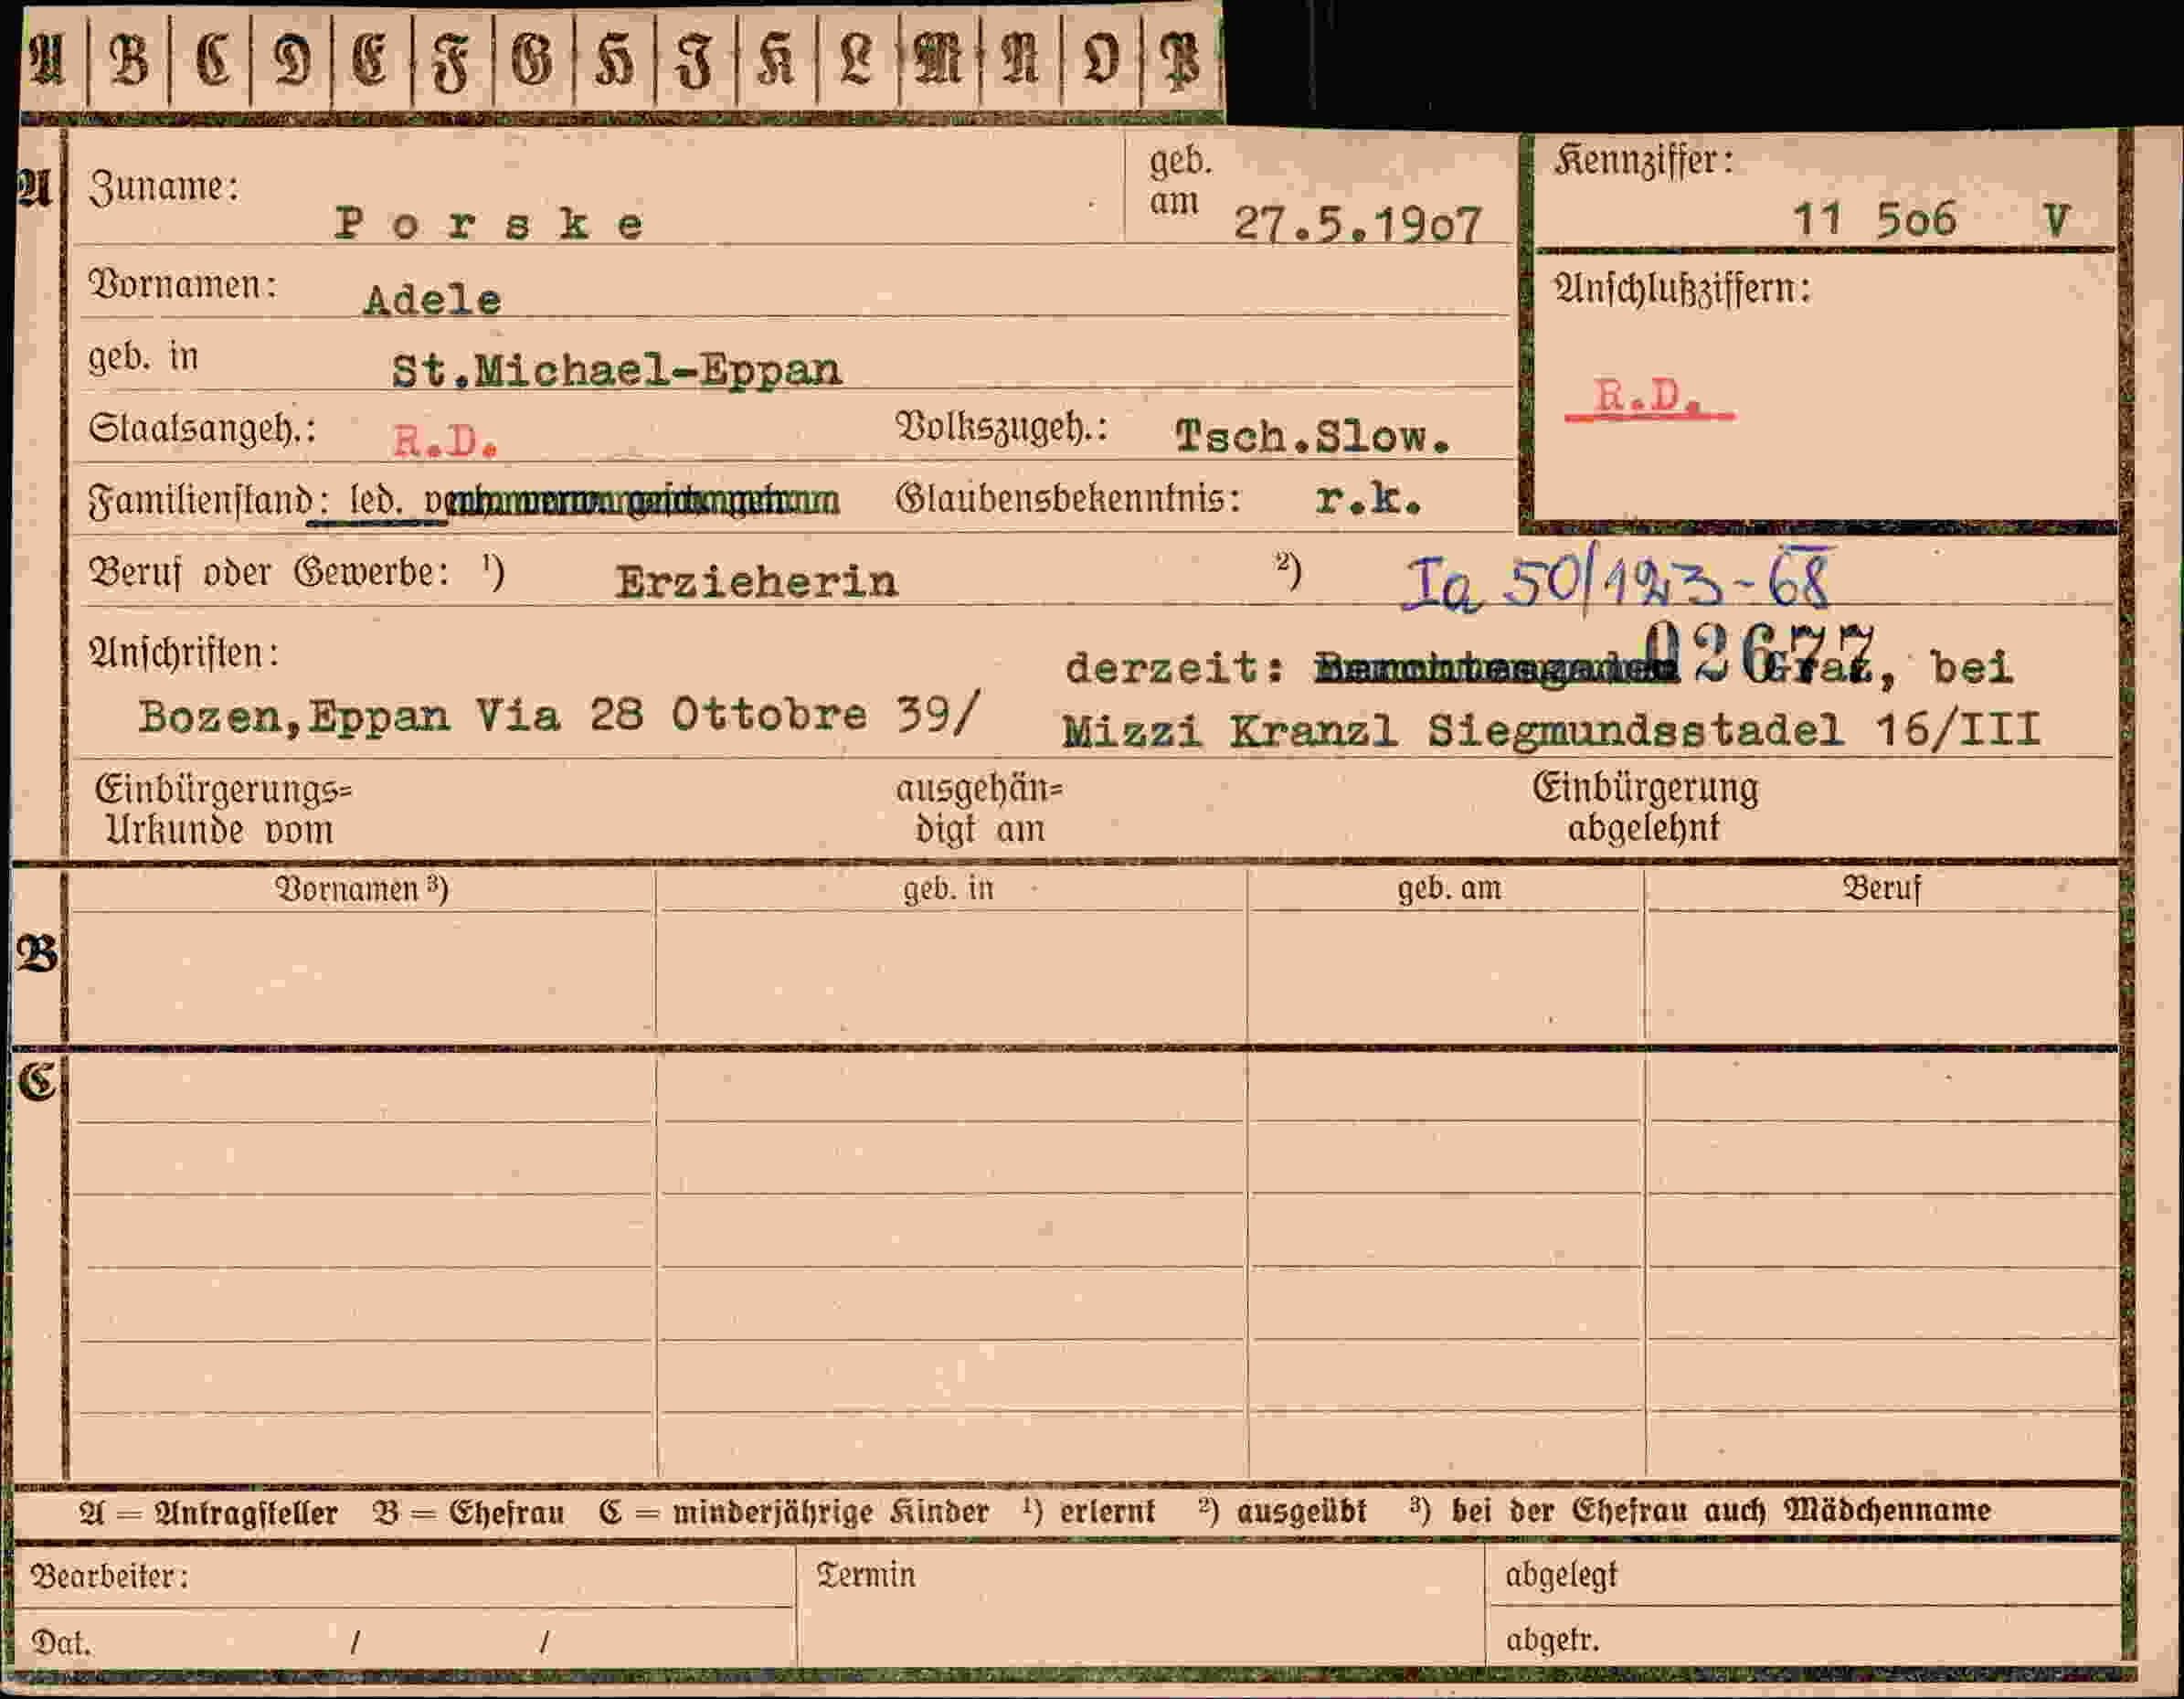 A B C D E F G H I K L M N O P
A Zuname: Porske geb. am 27.5.1907
Kennziffer: 11 506 V
Vornamen: Adele
Anschlußziffern:
R.D.
geb. in St.Michael-Eppan
Staatsangeh.: R.D. Volkszugeh.: Tsch.Slow.
Familienstand: led. Glaubensbekenntnis: r.k.
Beruf oder Gewerbe: ¹) Erzieherin ²) Ia 50/123-68
02677
Anschriften: derzeit: Graz, bei
Bozen,Eppan Via 28 Ottobre 39/ Mizzi Kranzl Siegmundsstadel 16/III
Einbürgerungs= ausgehän= Einbürgerung
Urkunde vom digt am abgelehnt
Vornamen ³) geb. in geb. am Beruf
B
C
A = Antragsteller B = Ehefrau C = minderjährige Kinder ¹) erlernt ²) ausgeübt ³) bei der Ehefrau auch Mädchenname
Bearbeiter: Termin abgelegt
Dat. / / abgetr.